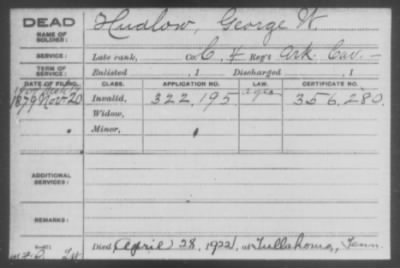 DEAD
NAME OF SOLDIER:
Hudlow, George W.
SERVICE:
Late rank, Co. C, 4 Reg't Ark. Cav. —
TERM OF SERVICE:
Enlisted , 1 Discharged , 1
DATE OF FILING. CLASS. APPLICATION NO. LAW. CERTIFICATE NO.
1879 Nov. 20 Invalid, 322,195 356,280.
Widow,
Minor,
ADDITIONAL SERVICES:
REMARKS:
Died April 28, 1922, at Tullahoma, Tenn.